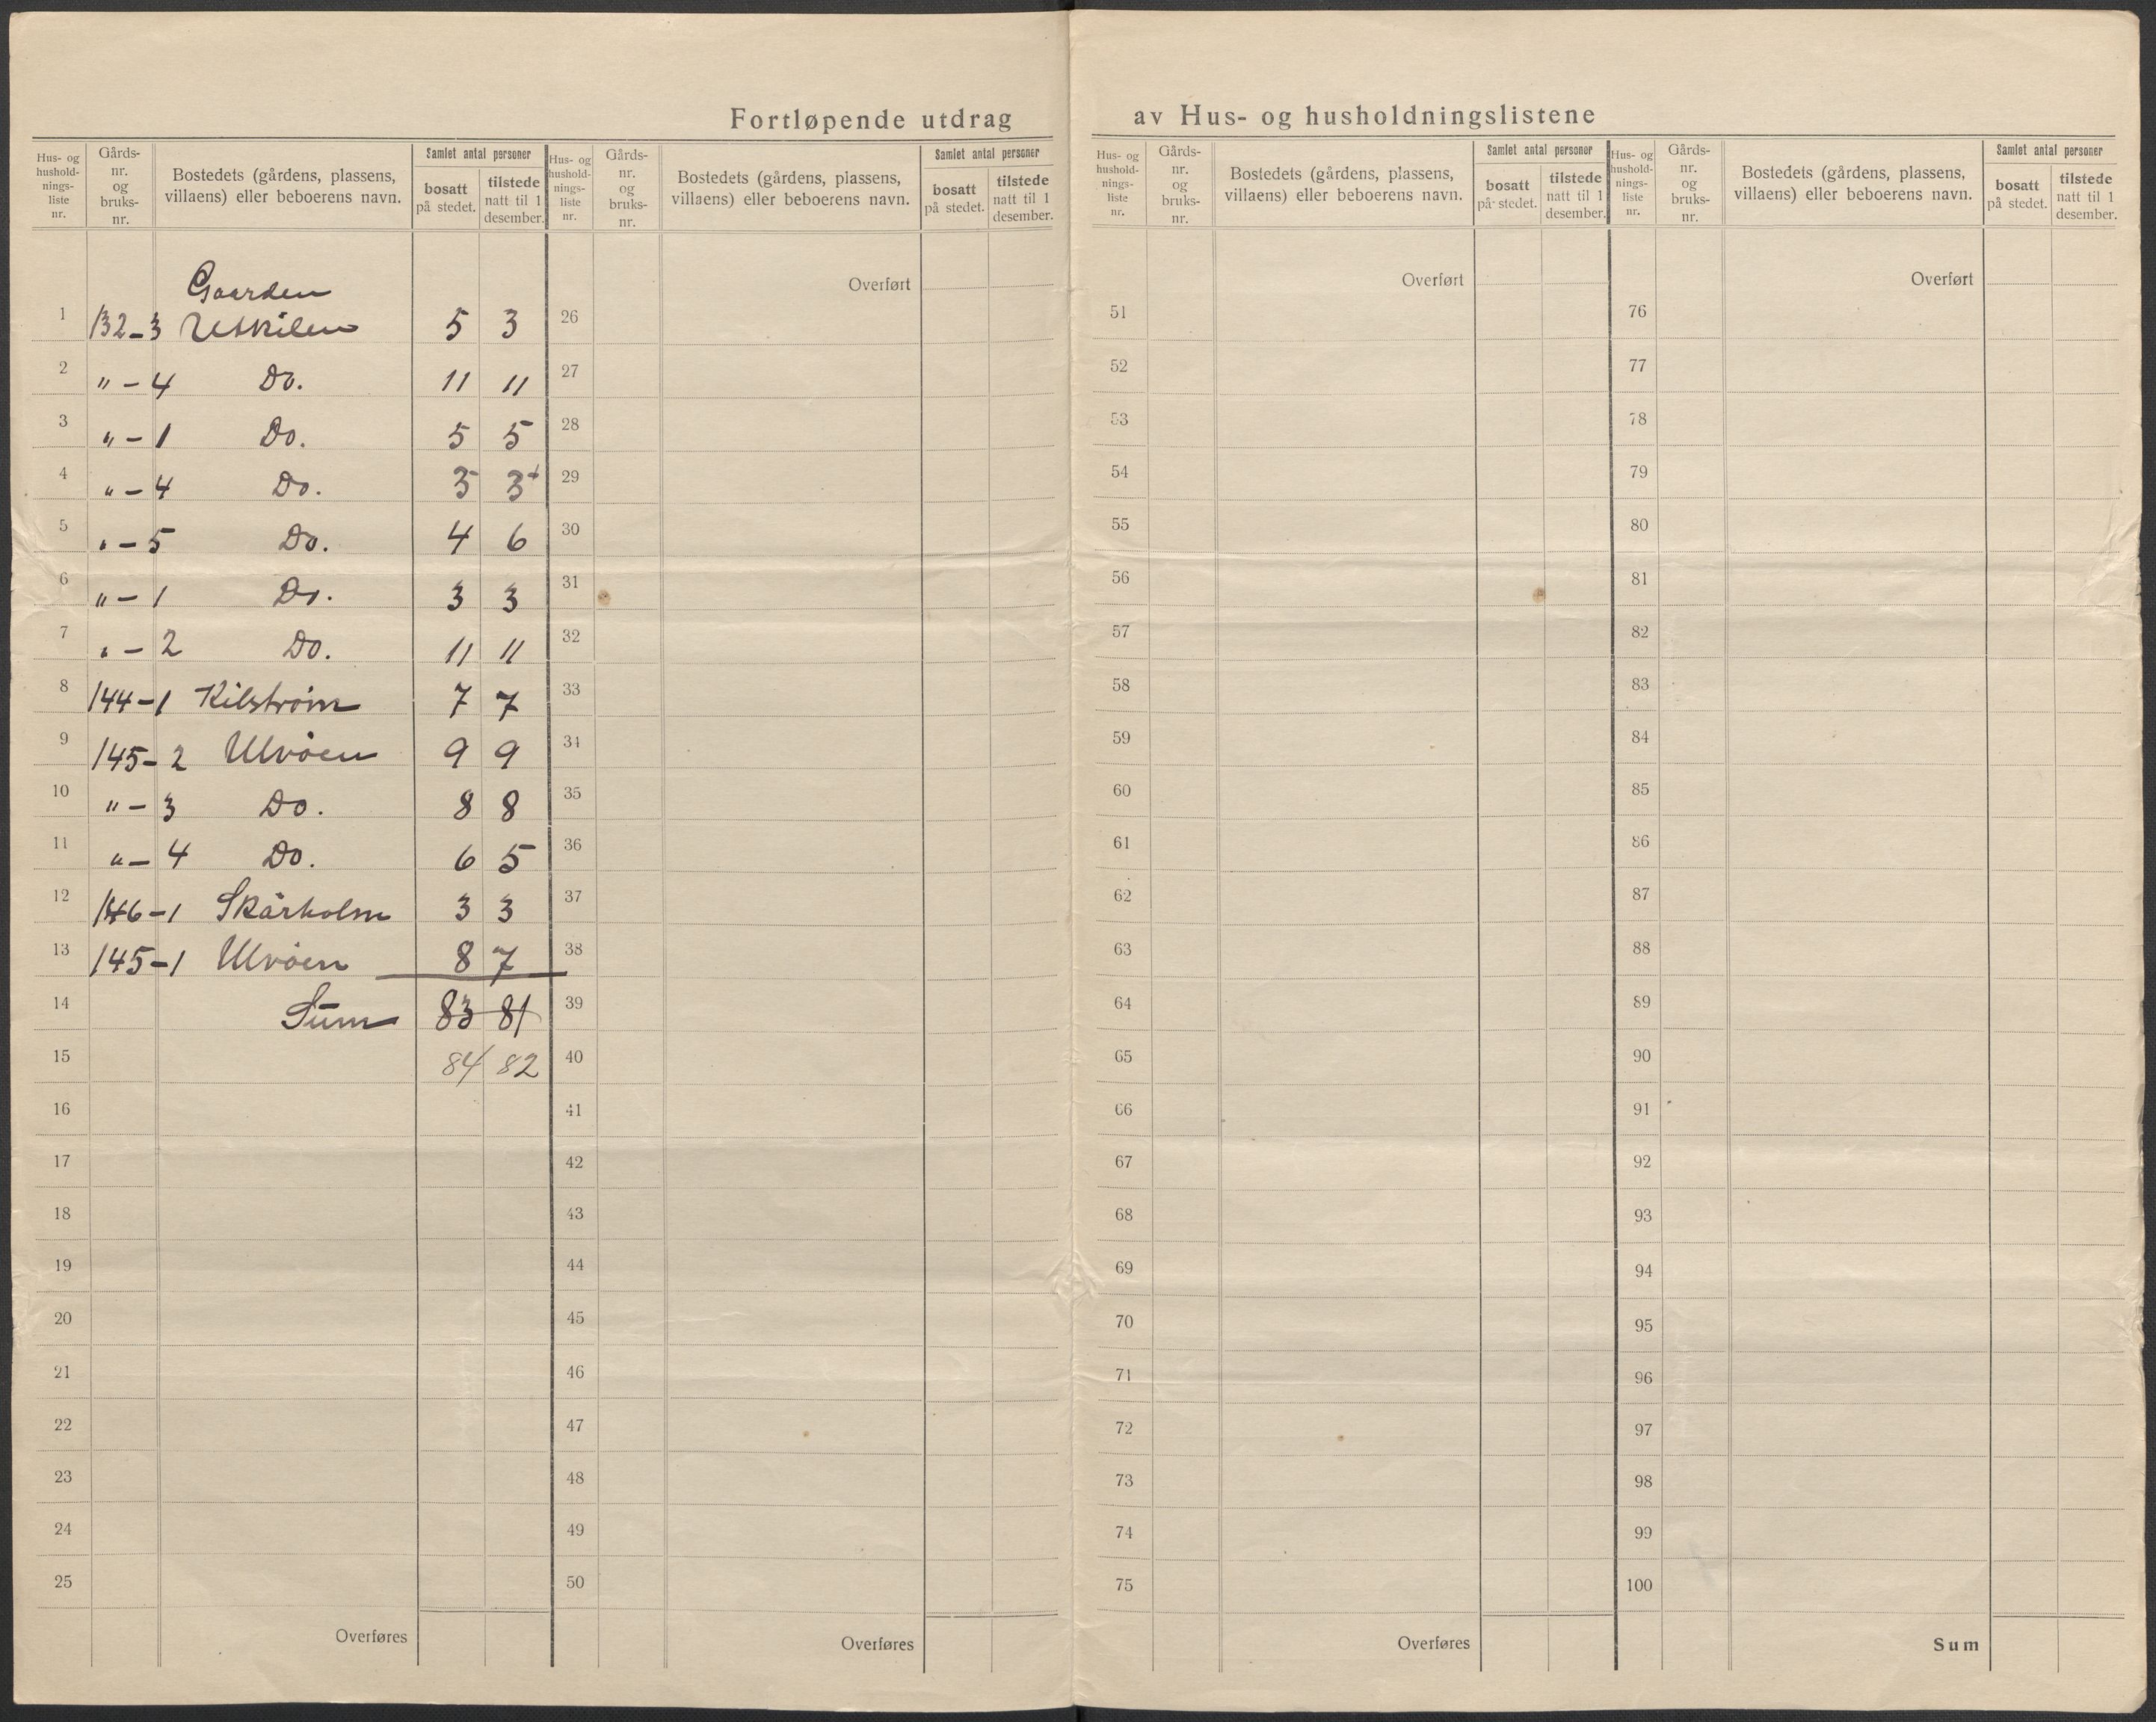 Fortløpende utdrag av Hus- og husholdningslistene
Hus- og hushold-nings-liste nr. | Gårds-nr. og bruks-nr. | Bostedets (gårdens, plassens, villaens) eller beboerens navn. | Samlet antal personer | bosatt på stedet. | tilstede natt til 1 desember.
Hus- og hushold-nings-liste nr. | Gårds-nr. og bruks-nr. | Bostedets (gårdens, plassens, villaens) eller beboerens navn. | Samlet antal personer | bosatt på stedet. | tilstede natt til 1 desember.
Hus- og hushold-nings-liste nr. | Gårds-nr. og bruks-nr. | Bostedets (gårdens, plassens, villaens) eller beboerens navn. | Samlet antal personer | bosatt på stedet. | tilstede natt til 1 desember.
Hus- og hushold-nings-liste nr. | Gårds-nr. og bruks-nr. | Bostedets (gårdens, plassens, villaens) eller beboerens navn. | Samlet antal personer | bosatt på stedet. | tilstede natt til 1 desember.
Gaarden
1 132-3 Utkilen 5 3
2 " - 4 Do. 11 11
3 " - 1 Do. 5 5
4 " - 4 Do. 3
5 " - 5 Do. 4 6
6 " - 1 Do. 3 3
7 " - 2 Do. 11 11
8 144-1 Kilstrøm 7 7
9 145-2 Ulvøen 9 9
10 " - 3 Do. 8 8
11 " - 4 Do. 6 5
12 146-1 Skårholm 3 3
13 145-1 Ulvøen 8 7
14 Sum 83 81
15 84 82
16
17
18
19
20
21
22
23
24
25
Overføres
Overført
26
27
28
29
30
31
32
33
34
35
36
37
38
39
40
41
42
43
44
45
46
47
48
49
50
Overføres
Overført
51
52
53
54
55
56
57
58
59
60
61
62
63
64
65
66
67
68
69
70
71
72
73
74
75
Overføres
Overført
76
77
78
79
80
81
82
83
84
85
86
87
88
89
90
91
92
93
94
95
96
97
98
99
100
Sum